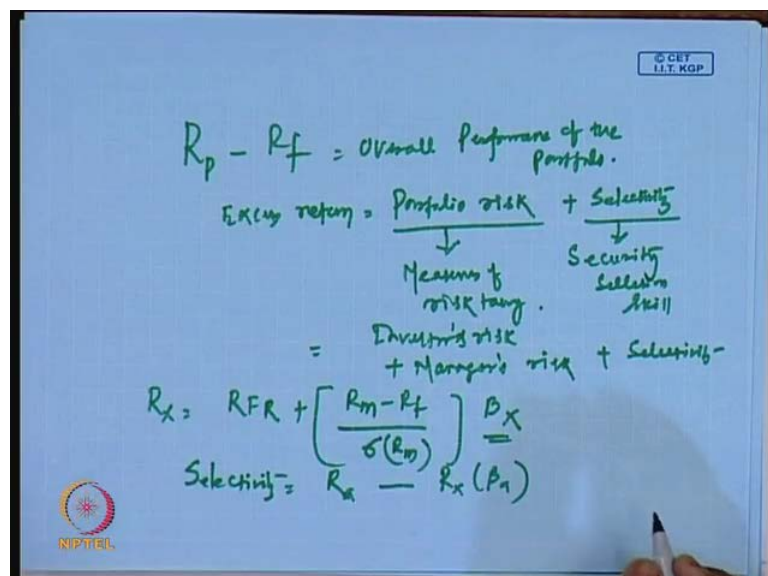 © CET
I.I.T. KGP
R_p - R_f = Overall Performane of the
Portfolio.
Excess return = Portfolio risk + Selectivity
↓ ↓
Measures of Security
risk taking. Selection
skill
= Investor's risk
+ Manager's risk + Selectivity
R_x = RFR + [ (R_m - R_f) / σ(R_m) ] β_x
Selectivity = R_a — R_x (β_a)
NPTEL